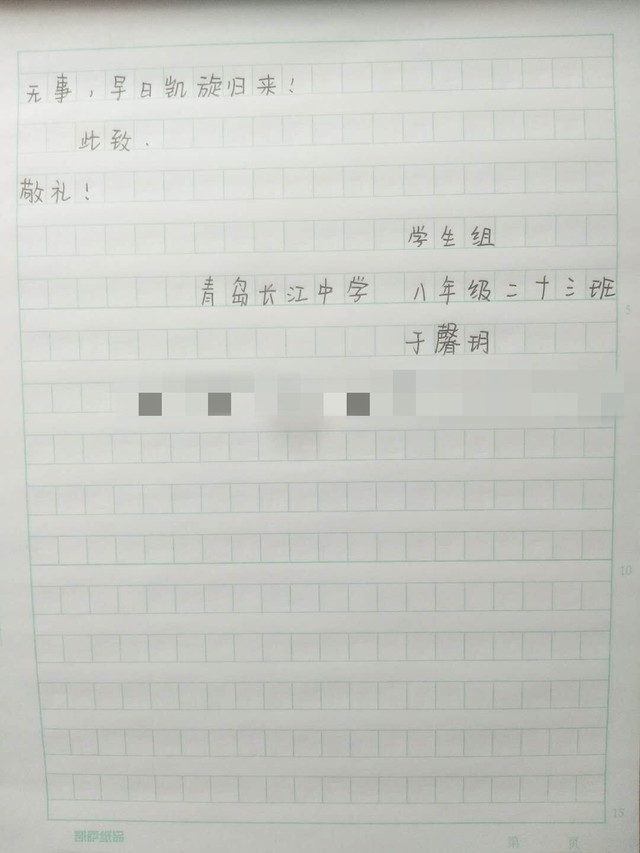 无事，早日凯旋归来！
此致.
敬礼！
学生组
青岛长江中学 八年级二十三班
于馨玥
5
10
15
凯萨纸品
第 页